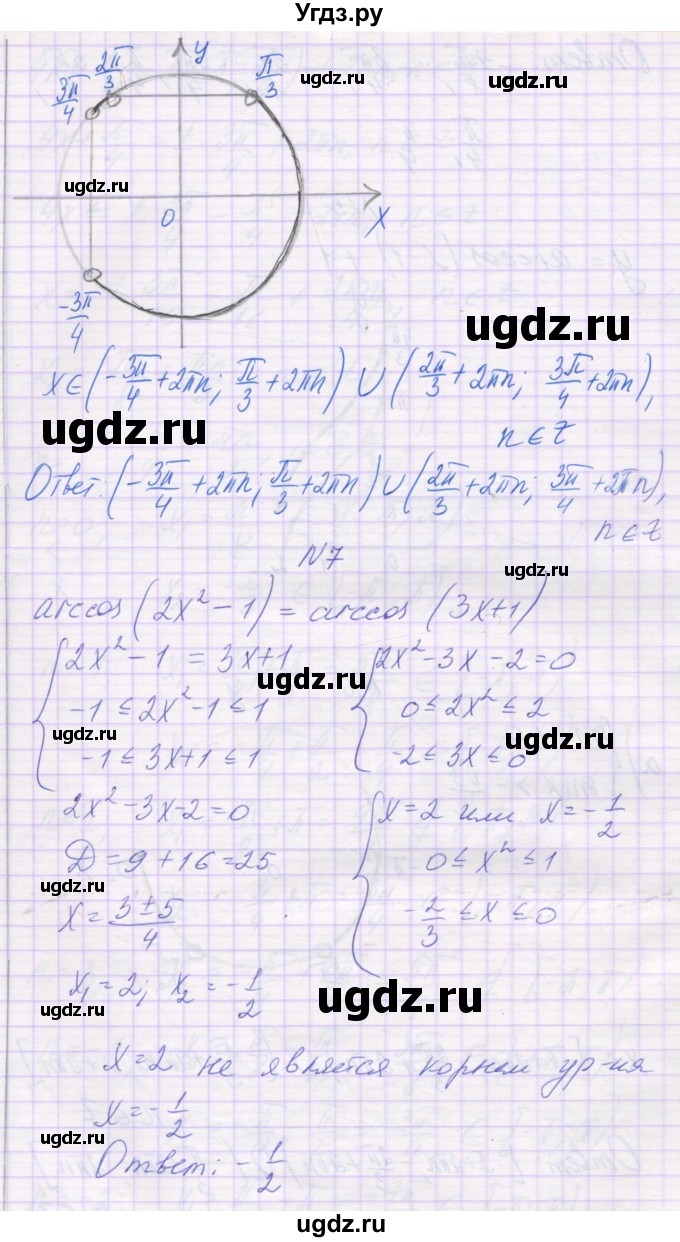 Угдз.ру
y
2π/3
π/3
3π/4
ugdz.ru
ugdz.ru
ugdz.ru
0
X
-3π/4
ugdz.ru
x∈(-3π/4+2πn; π/3+2πn)∪(2π/3+2πn; 3π/4+2πn),
ugdz.ru
n∈Z
Ответ: (-3π/4+2πn; π/3+2πn)∪(2π/3+2πn; 3π/4+2πn),
n∈z
N7
ugdz.ru
arccos(2x²-1)=arccos(3x+1)
{2x²-1=3x+1 {2x²-3x-2=0
ugdz.ru
-1≤2x²-1≤1 0≤2x²≤2
ugdz.ru ugdz.ru
-1≤3x+1≤1 -2≤3x≤0
2x²-3x-2=0 {x=2 или x=-1/2
Д=9+16=25 0≤x²≤1
ugdz.ru
x=(3±5)/4 -2/3≤x≤0
x₁=2; x₂=-1/2
ugdz.ru
ugdz.ru
x=2 не является корнем ур-ия
x=-1/2
ugdz.ru
Ответ: -1/2
ugdz.ru